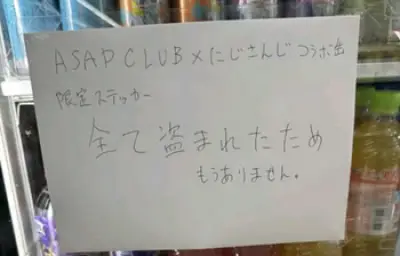 ASAP CLUB×にじさんじコラボ缶
限定ステッカー
全て盗まれたため
もうありません。